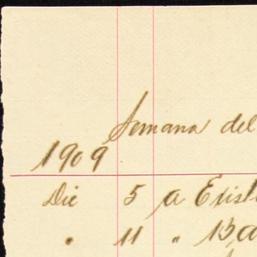 Semana del
1909
Dic 5 a Exist
" 11 "